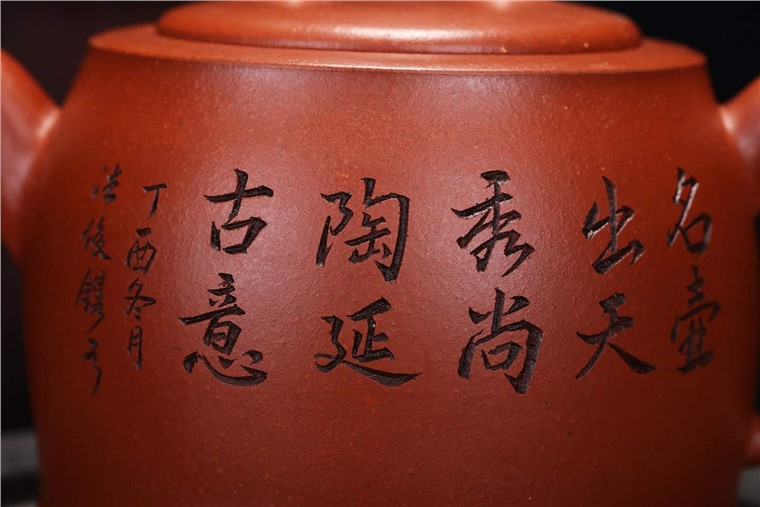 名壶
出天
秀尚
陶延
古意
丁酉冬月